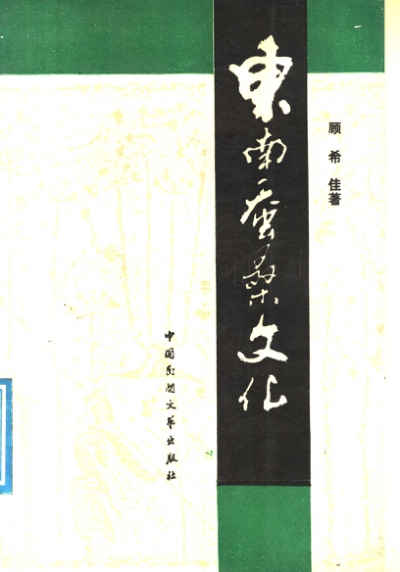 顾希佳著
東南蚕桑文化
中国民间文艺出版社